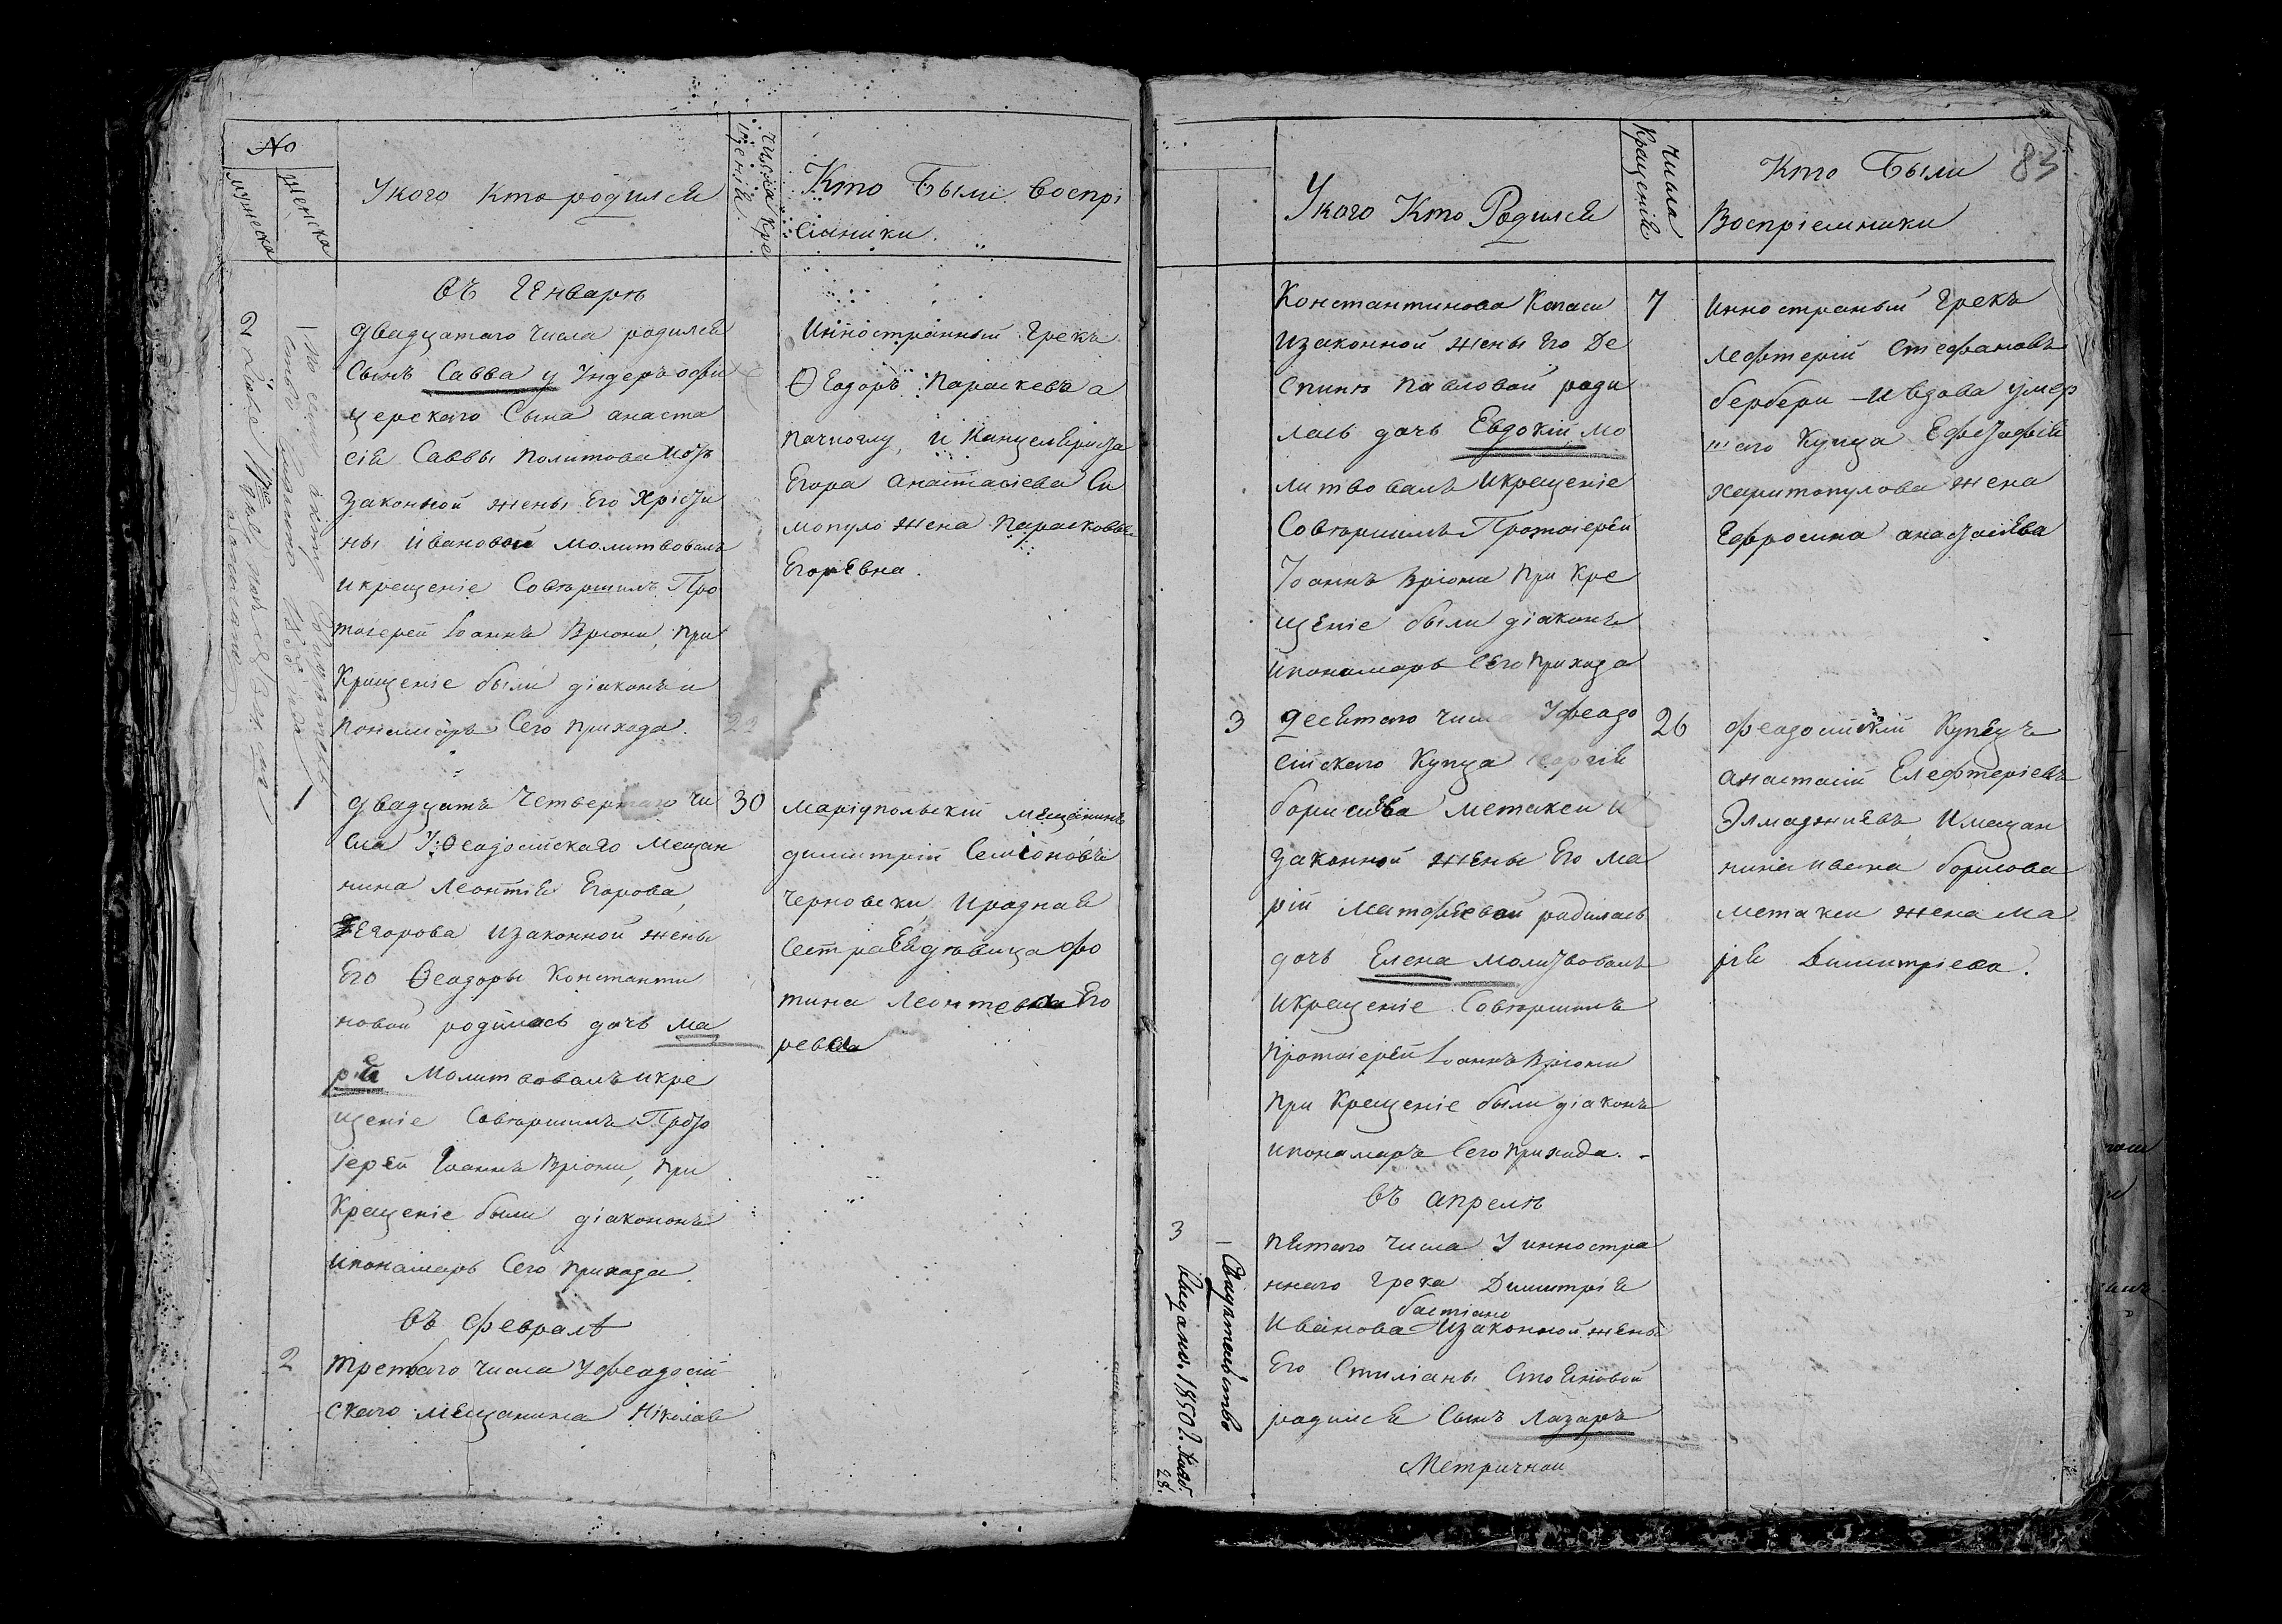 №
мужеска
женска
У кого кто родился
числа кре
щенія.
Кто Были воспрі
емники.
въ Генваре
2
двадцатаго числа родился
Сынъ Савва у Ундеръ офи
церскаго Сына анаста
сія Саввы Политова изъ
законной жены Его Хрісти
ны ивановой молитвовалъ
и крещеніе Совершилъ Про
тоіерей Іоаннъ Вріони, при
Крещеніе были діаконъ и
Пономарь Сего прихода.
22
Инностранный Грекъ
Ѳеодоръ Параскева а
пачиоглу, и Канцеляриста
Егора Анастасіева Си
мопуло жена Парасковья
Егоревна.
1
двадцать Четвертаго Чи
сла У Ѳеодосійскаго Мещан
нина Леонтія Егорова,
Егорова и законной жены
Его Ѳеодоры Константи
новой родилась дочь Ма
рія Молитвовалъ и кре
щеніе Совершилъ Прото
іерей Іоаннъ Вріони, при
Крещеніе были діакононъ
и пономарь Сего прихода.
30
Маріупольскій мещанинъ
димитрій Семіоновъ
Черновски, и родная
Сестра Ея девица Фо
тина Леонтевна Его
ревна
въ Феврале
2
третьего числа У Феодосій
скаго мещанина Николая
83
У кого Кто Родился
числа
Крещеній
Кто Были
Воспріемники
Константинова Капаси
и законной жены Его Де
спины Павловой роди
лась дочь Евдокія, мо
литвовалъ и крещеніе
Совершилъ Протоіерей
Іоаннъ Вріони При Кре
щеніе были діаконъ
и пономарь Сего прихода
7
Инностраный Грекъ
Лефтерій Стефановъ
бербери - и вдова умер
шего Купца Ефстафія
харитопулова жена
Ефросина анастасіева
3
десятаго числа У Феодо
сійскаго Купца Георгія
борисова Метакси и
законной жены Его Ма
ріи Матфеевой родилась
дочь Елена молитвовалъ
и крещеніе Совершилъ
Протоіерей Іоаннъ Вріони
при Крещеніе были діаконъ
и пономаръ Сего прихода.
26
Феодосійскій Купецъ
анастасій Елефтеріевъ
Элмаджиевъ, и мещан
нина ивана борисова
метакси жена Ма
рія Димитріева.
въ апреле
3
пятаго числа У инностра
ннаго грека Димитрія
бастіано
Иванова и законной жены
Его Стиліаны Стояновой
родился Сынъ Лазаръ
Свидетельство
выдано. 1850 г. Нояб.
28.
Метричной